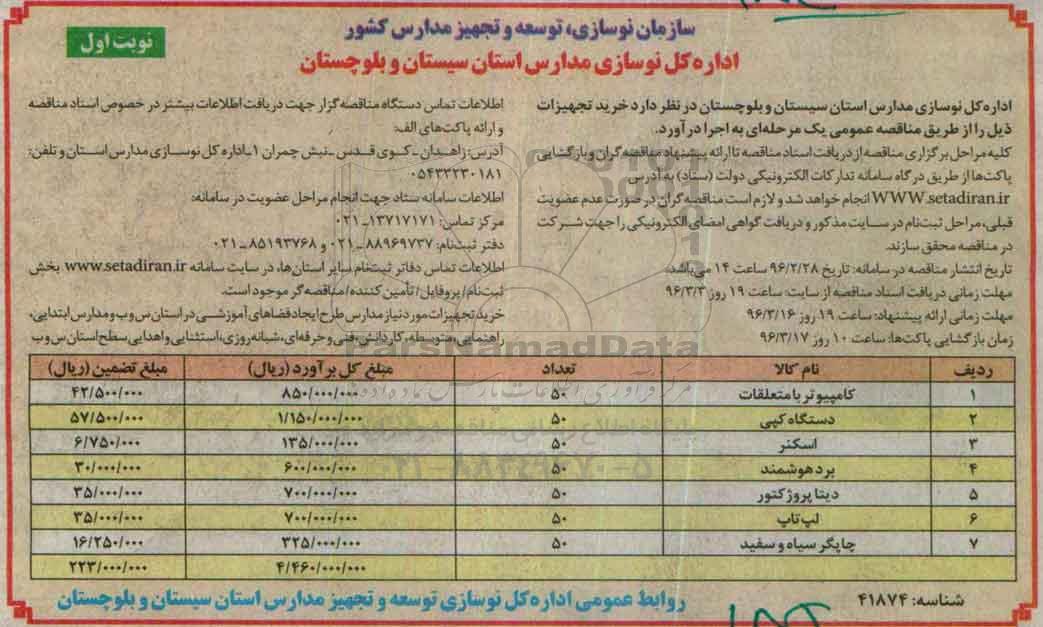 سازمان نوسازی، توسعه و تجهیز مدارس کشور
نوبت اول
اداره کل نوسازی مدارس استان سیستان و بلوچستان
اداره کل نوسازی مدارس استان سیستان و بلوچستان در نظر دارد خرید تجهیزات
ذیل را از طریق مناقصه عمومی یک مرحله‌ای به اجرا در آورد.
کلیه مراحل برگزاری مناقصه از دریافت اسناد مناقصه تا ارائه پیشنهاد مناقصه گران و بازگشایی
پاکت‌ها از طریق درگاه سامانه تدارکات الکترونیکی دولت (ستاد) به آدرس
WWW.setadiran.ir انجام خواهد شد و لازم است مناقصه گران در صورت عدم عضویت
قبلی، مراحل ثبت‌نام در سایت مذکور و دریافت گواهی امضای الکترونیکی را جهت شرکت
در مناقصه محقق سازند.
تاریخ انتشار مناقصه در سامانه: تاریخ ۹۶/۲/۲۸ ساعت ۱۴ می‌باشد.
مهلت زمانی دریافت اسناد مناقصه از سایت: ساعت ۱۹ روز ۹۶/۳/۳
مهلت زمانی ارائه پیشنهاد: ساعت ۱۹ روز ۹۶/۳/۱۶
زمان بازگشایی پاکت‌ها: ساعت ۱۰ روز ۹۶/۳/۱۷
اطلاعات تماس دستگاه مناقصه‌گزار جهت دریافت اطلاعات بیشتر در خصوص اسناد مناقصه
و ارائه پاکت‌های الف:
آدرس: زاهدان ـ کوی قدس ـ نبش چمران ۱ـ اداره کل نوسازی مدارس استان و تلفن:
۰۵۴۳۳۲۳۰۱۸۱
اطلاعات سامانه ستاد جهت انجام مراحل عضویت در سامانه:
مرکز تماس: ۱۳۷۱۷۱۷۱ـ۰۲۱
دفتر ثبت‌نام: ۸۸۹۶۹۷۳۷ـ۰۲۱ و ۸۵۱۹۳۷۶۸ـ۰۲۱
اطلاعات تماس دفاتر ثبت‌نام سایر استان‌ها، در سایت سامانه www.setadiran.ir بخش
ثبت‌نام/پروفایل/تأمین کننده/مناقصه‌گر موجود است.
خرید تجهیزات مورد نیاز مدارس طرح ایجاد فضاهای آموزشی در استان س و ب و مدارس ابتدایی،
راهنمایی، متوسطه، کاردانش، فنی و حرفه‌ای، شبانه‌روزی، استثنایی و اهدایی سطح استان س و ب
ParsNamadData
ردیف نام کالا تعداد مبلغ کل برآورد (ریال) مبلغ تضمین (ریال)
۱ کامپیوتر با متعلقات ۵۰ ۸۵۰/۰۰۰/۰۰۰ ۴۲/۵۰۰/۰۰۰
۲ دستگاه کپی ۵۰ ۱/۱۵۰/۰۰۰/۰۰۰ ۵۷/۵۰۰/۰۰۰
۳ اسکنر ۵۰ ۱۳۵/۰۰۰/۰۰۰ ۶/۷۵۰/۰۰۰
۴ برد هوشمند ۵۰ ۶۰۰/۰۰۰/۰۰۰ ۳۰/۰۰۰/۰۰۰
۵ دیتا پروژکتور ۵۰ ۷۰۰/۰۰۰/۰۰۰ ۳۵/۰۰۰/۰۰۰
۶ لپ تاپ ۵۰ ۷۰۰/۰۰۰/۰۰۰ ۳۵/۰۰۰/۰۰۰
۷ چاپگر سیاه و سفید ۵۰ ۳۲۵/۰۰۰/۰۰۰ ۱۶/۲۵۰/۰۰۰
۴/۴۶۰/۰۰۰/۰۰۰ ۲۲۳/۰۰۰/۰۰۰
شناسه: ۴۱۸۷۴
روابط عمومی اداره کل نوسازی توسعه و تجهیز مدارس استان سیستان و بلوچستان